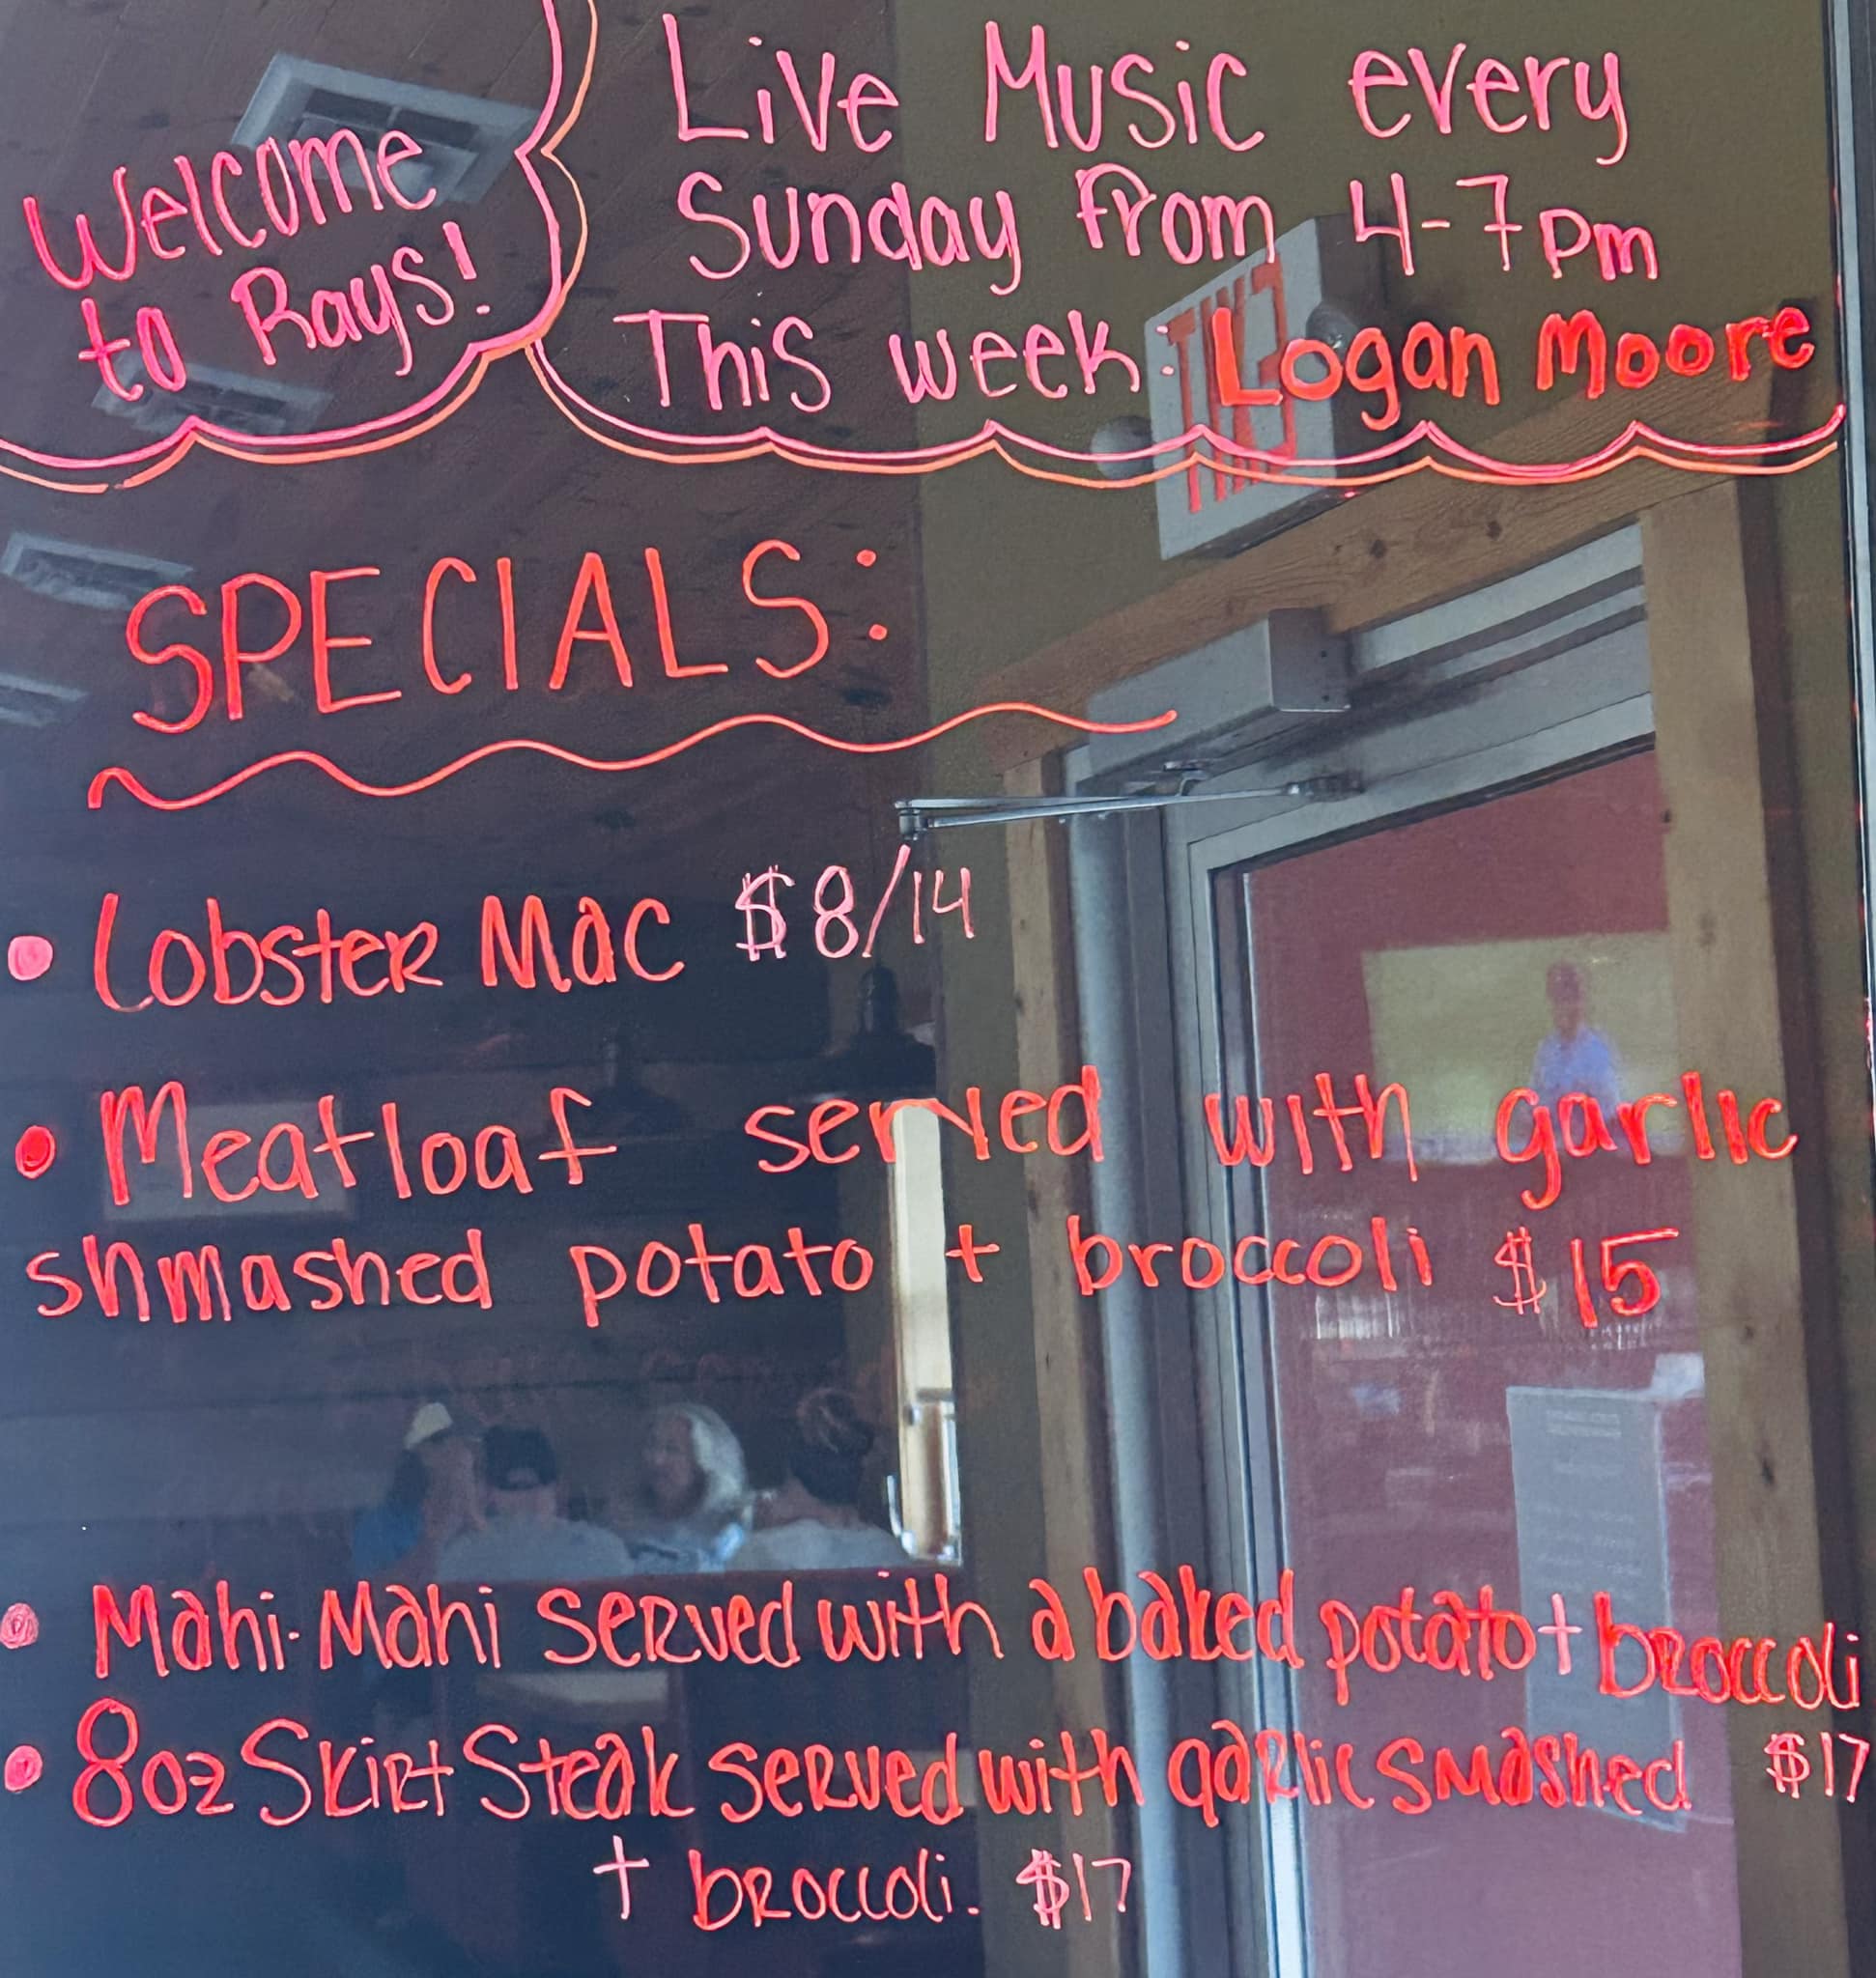 Welcome
to Rays!
Live Music every
Sunday from 4-7pm
This week: Logan Moore
SPECIALS:
• Lobster Mac $8/14
• Meatloaf served with garlic
shmashed potato + broccoli $15
• Mahi-Mahi served with a baked potato + broccoli
$17
• 8oz Skirt Steak served with garlic smashed
+ broccoli. $17
EXIT